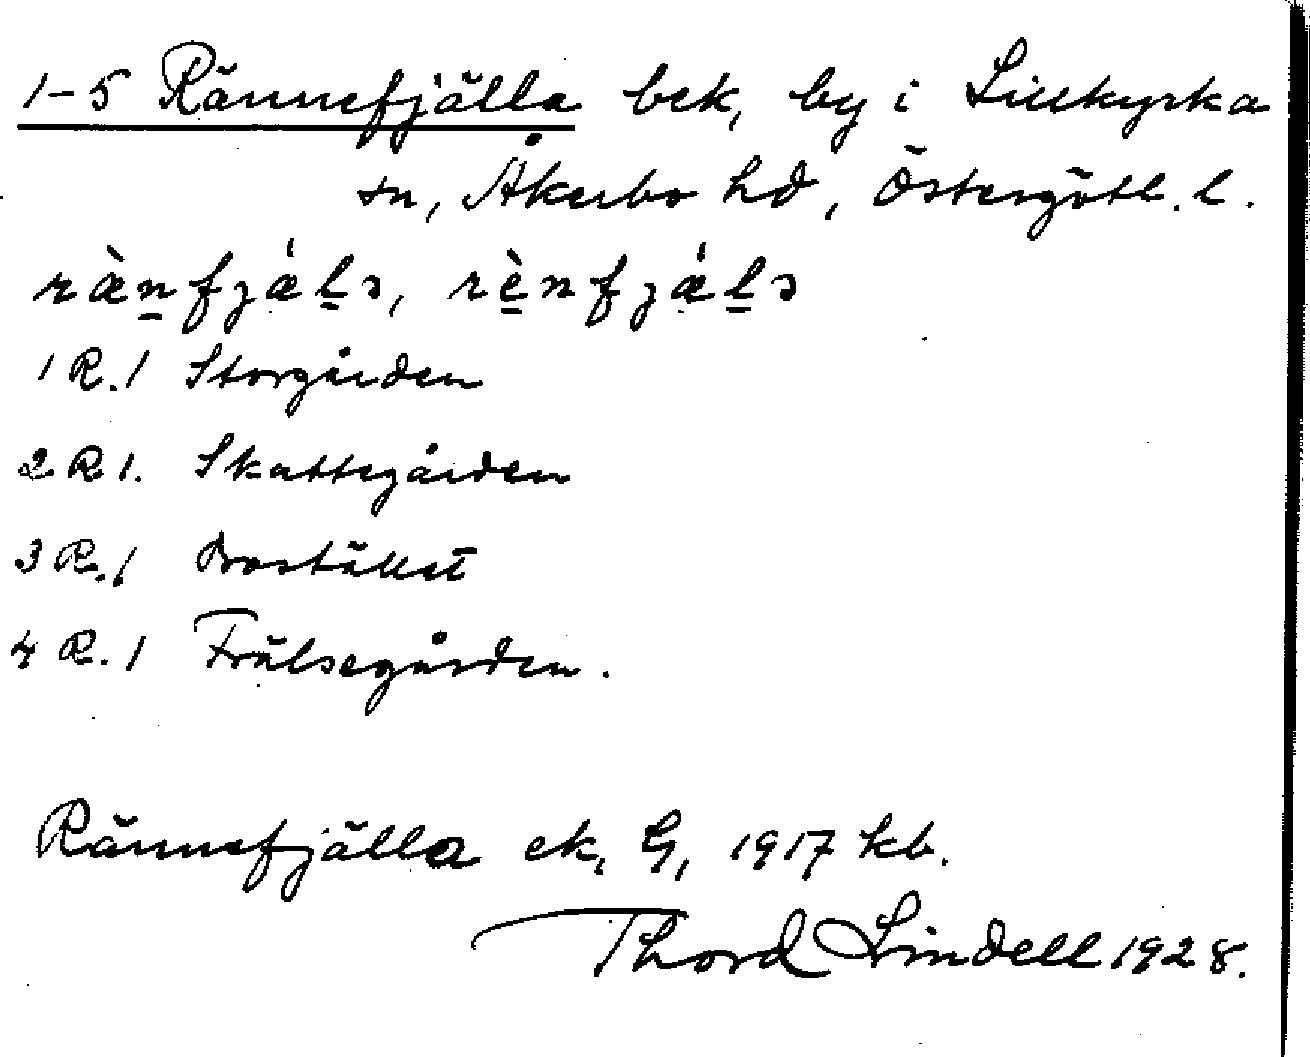 1-5 Rännefjälla bek, by i Lillkyrka
sn, Åkerbo hd, Östergötl. l.
ræ̀n̠fjæ̍l̠ɔ, rèn̠fjæ̍l̠ɔ
1 R. 1 Storgården
2 R 1. Skattegården
3 R. 1 Brostället
4 R. 1 Frälsegården.
Rännefjälla ek, G, 1917 kb.
Thord Lindell 1928.